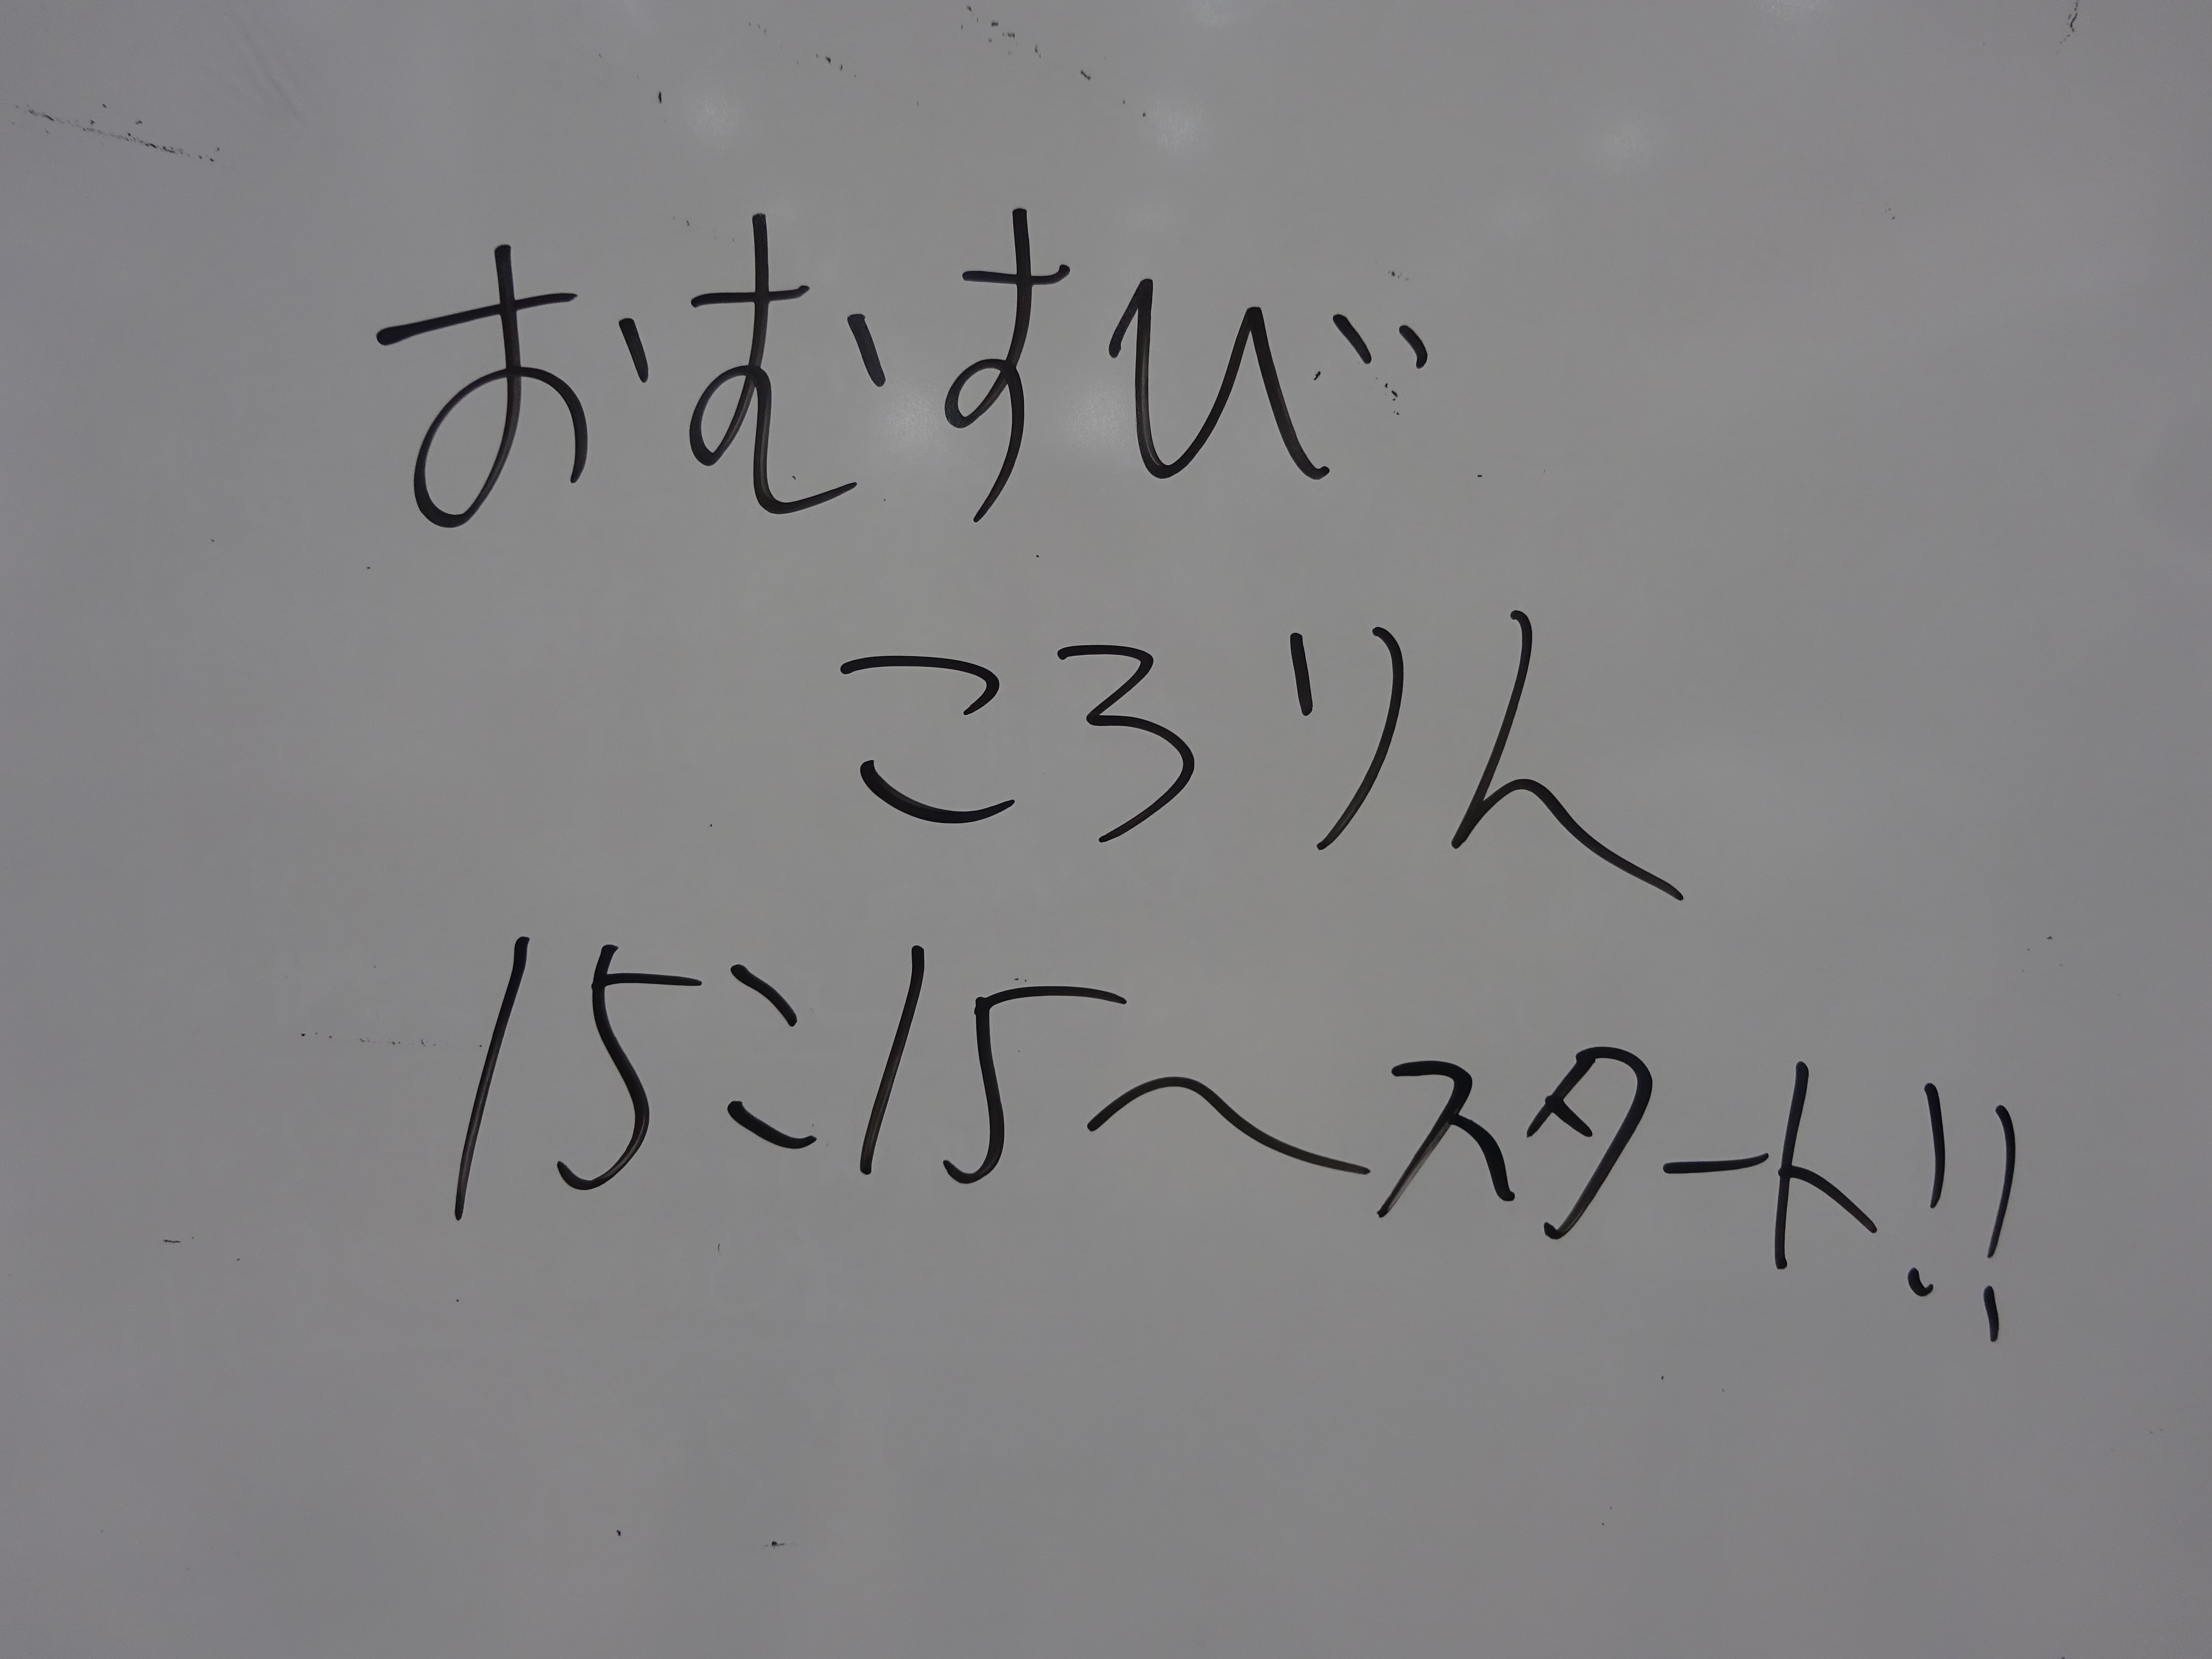 おむすび
ころりん
15:15〜スタート!!